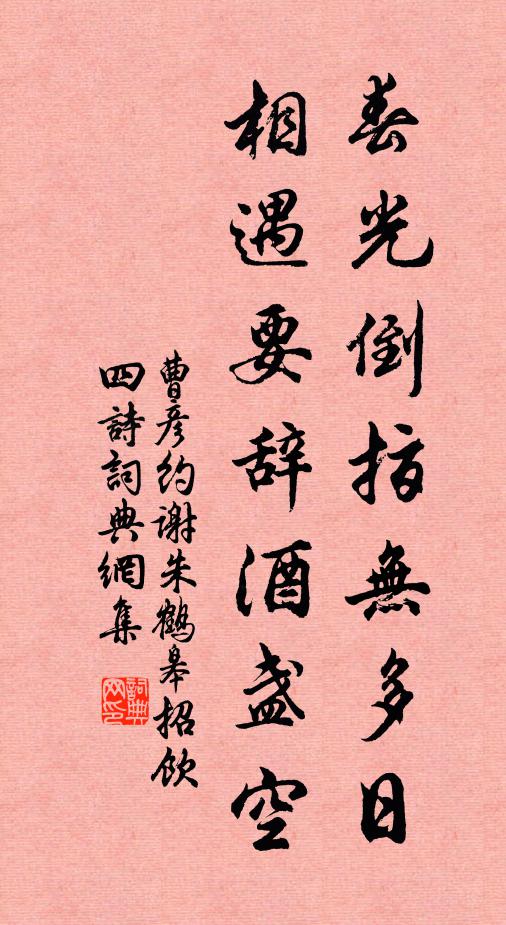 春光倒指無多日
相遇要辞酒盏空
曹彦约谢朱鶴皋招饮
四詩詞典網集
詞典网印